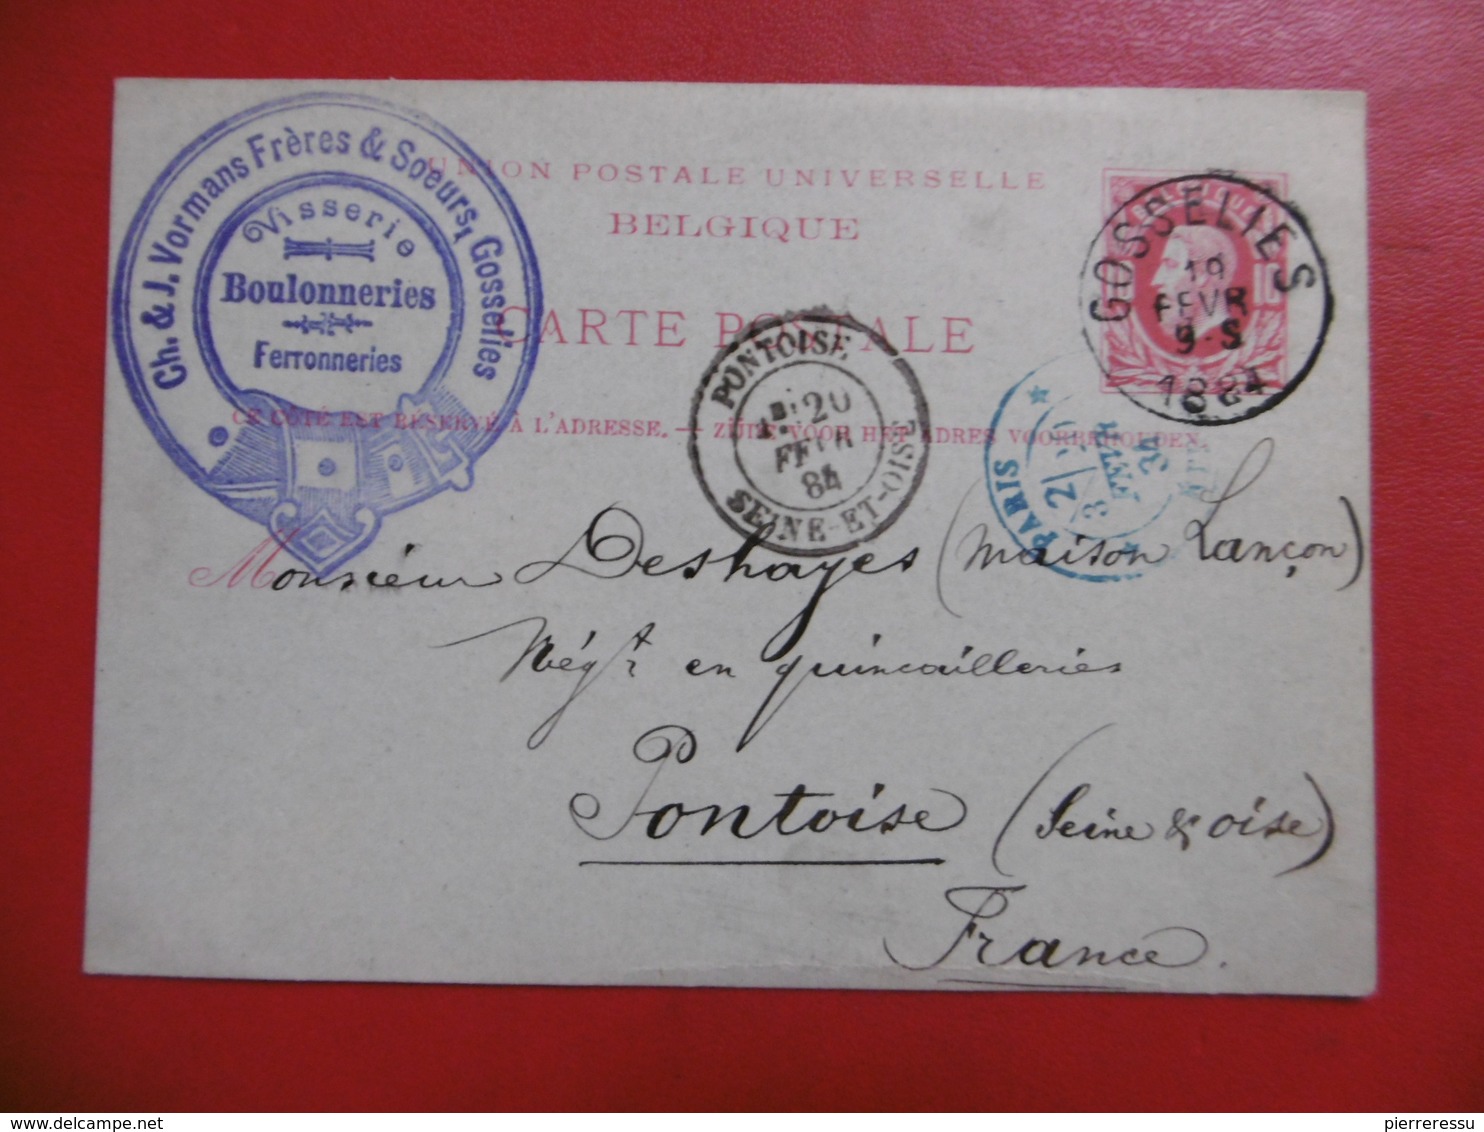 Ch. & J. Vormans Frères & Soeurs, Gosselies
Visserie
Boulonneries
Ferronneries
UNION POSTALE UNIVERSELLE
BELGIQUE
CARTE POSTALE
CE CÔTÉ EST RÉSERVÉ À L'ADRESSE. — ZIJDE VOOR HET ADRES VOORBEHOUDEN.
GOSSELIES
19
FEVR
9-S
1884
PONTOISE
20
FEVR
84
SEINE-ET-OISE
PARIS
Monsieur Deshayes (Maison Lançon)
Négt en quincailleries
Pontoise (Seine & Oise)
France.
delcampe.net
pierreressu